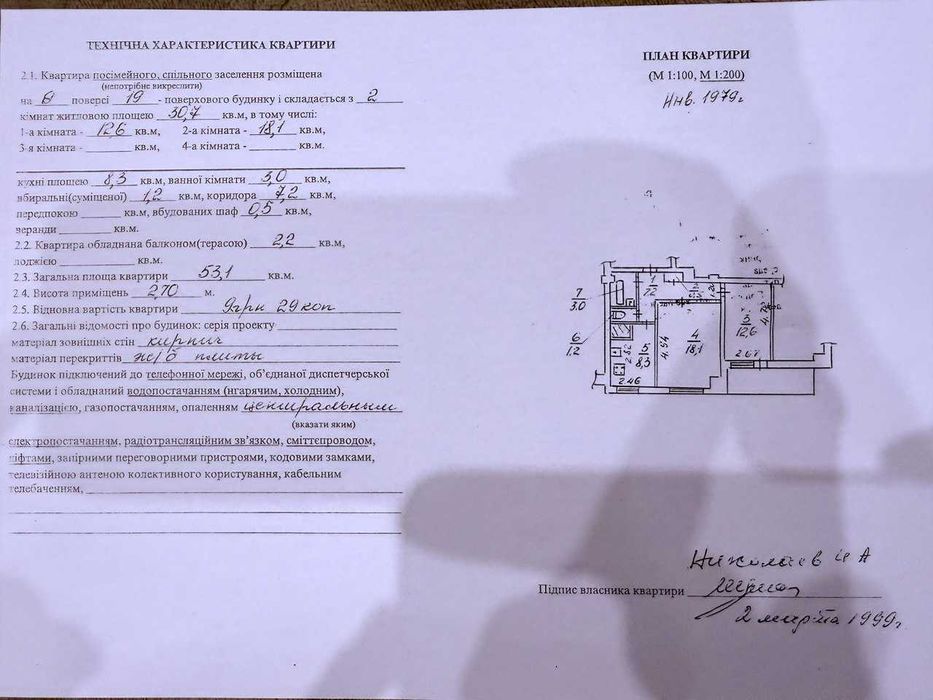 ТЕХНІЧНА ХАРАКТЕРИСТИКА КВАРТИРИ
2.1. Квартира посімейного, спільного заселення розміщена
(непотрібне викреслити)
на поверсі 19 - поверхового будинку і складається з 2
кімнат житловою площею 30,7 кв.м, в тому числі:
1-а кімната - 12,6 кв.м, 2-а кімната - 18,1 кв.м,
3-я кімната - кв.м, 4-а кімната - кв.м.
кухні площею 8,3 кв.м, ванної кімнати 3,0 кв.м,
вбиральні(суміщеної) 1,2 кв.м, коридора 7,2 кв.м,
передпокою кв.м, вбудованих шаф 0,5 кв.м,
веранди кв.м.
2.2. Квартира обладнана балконом(терасою) 2,2 кв.м,
лоджією кв.м.
2.3. Загальна площа квартири 53,1 кв.м.
2.4. Висота приміщень 2,70 м.
2.5. Відновна вартість квартири 9грн 29коп
2.6. Загальні відомості про будинок: серія проекту
матеріал зовнішніх стін кирпич
матеріал перекриттів ж/б плиты
Будинок підключений до телефонної мережі, об'єднаної диспетчерської
системи і обладнаний водопостачанням (нгарячим, холодним),
каналізацією, газопостачанням, опаленням центральным
(вказати яким)
електропостачанням, радіотрансляційним зв'язком, сміттєпроводом,
ліфтами, запірними переговорними пристроями, кодовими замками,
телевізійною антеною колективного користування, кабельним
телебаченням,
ПЛАН КВАРТИРИ
(М 1:100, М 1:200)
Инв. 1979г
7
3.0
6
1.2
1
7.2
5
8,3
2.82
2.46
4
18,1
4.54
3
12,6
2.67
Николаев И А
Підпис власника квартири
2 марта 1999г.